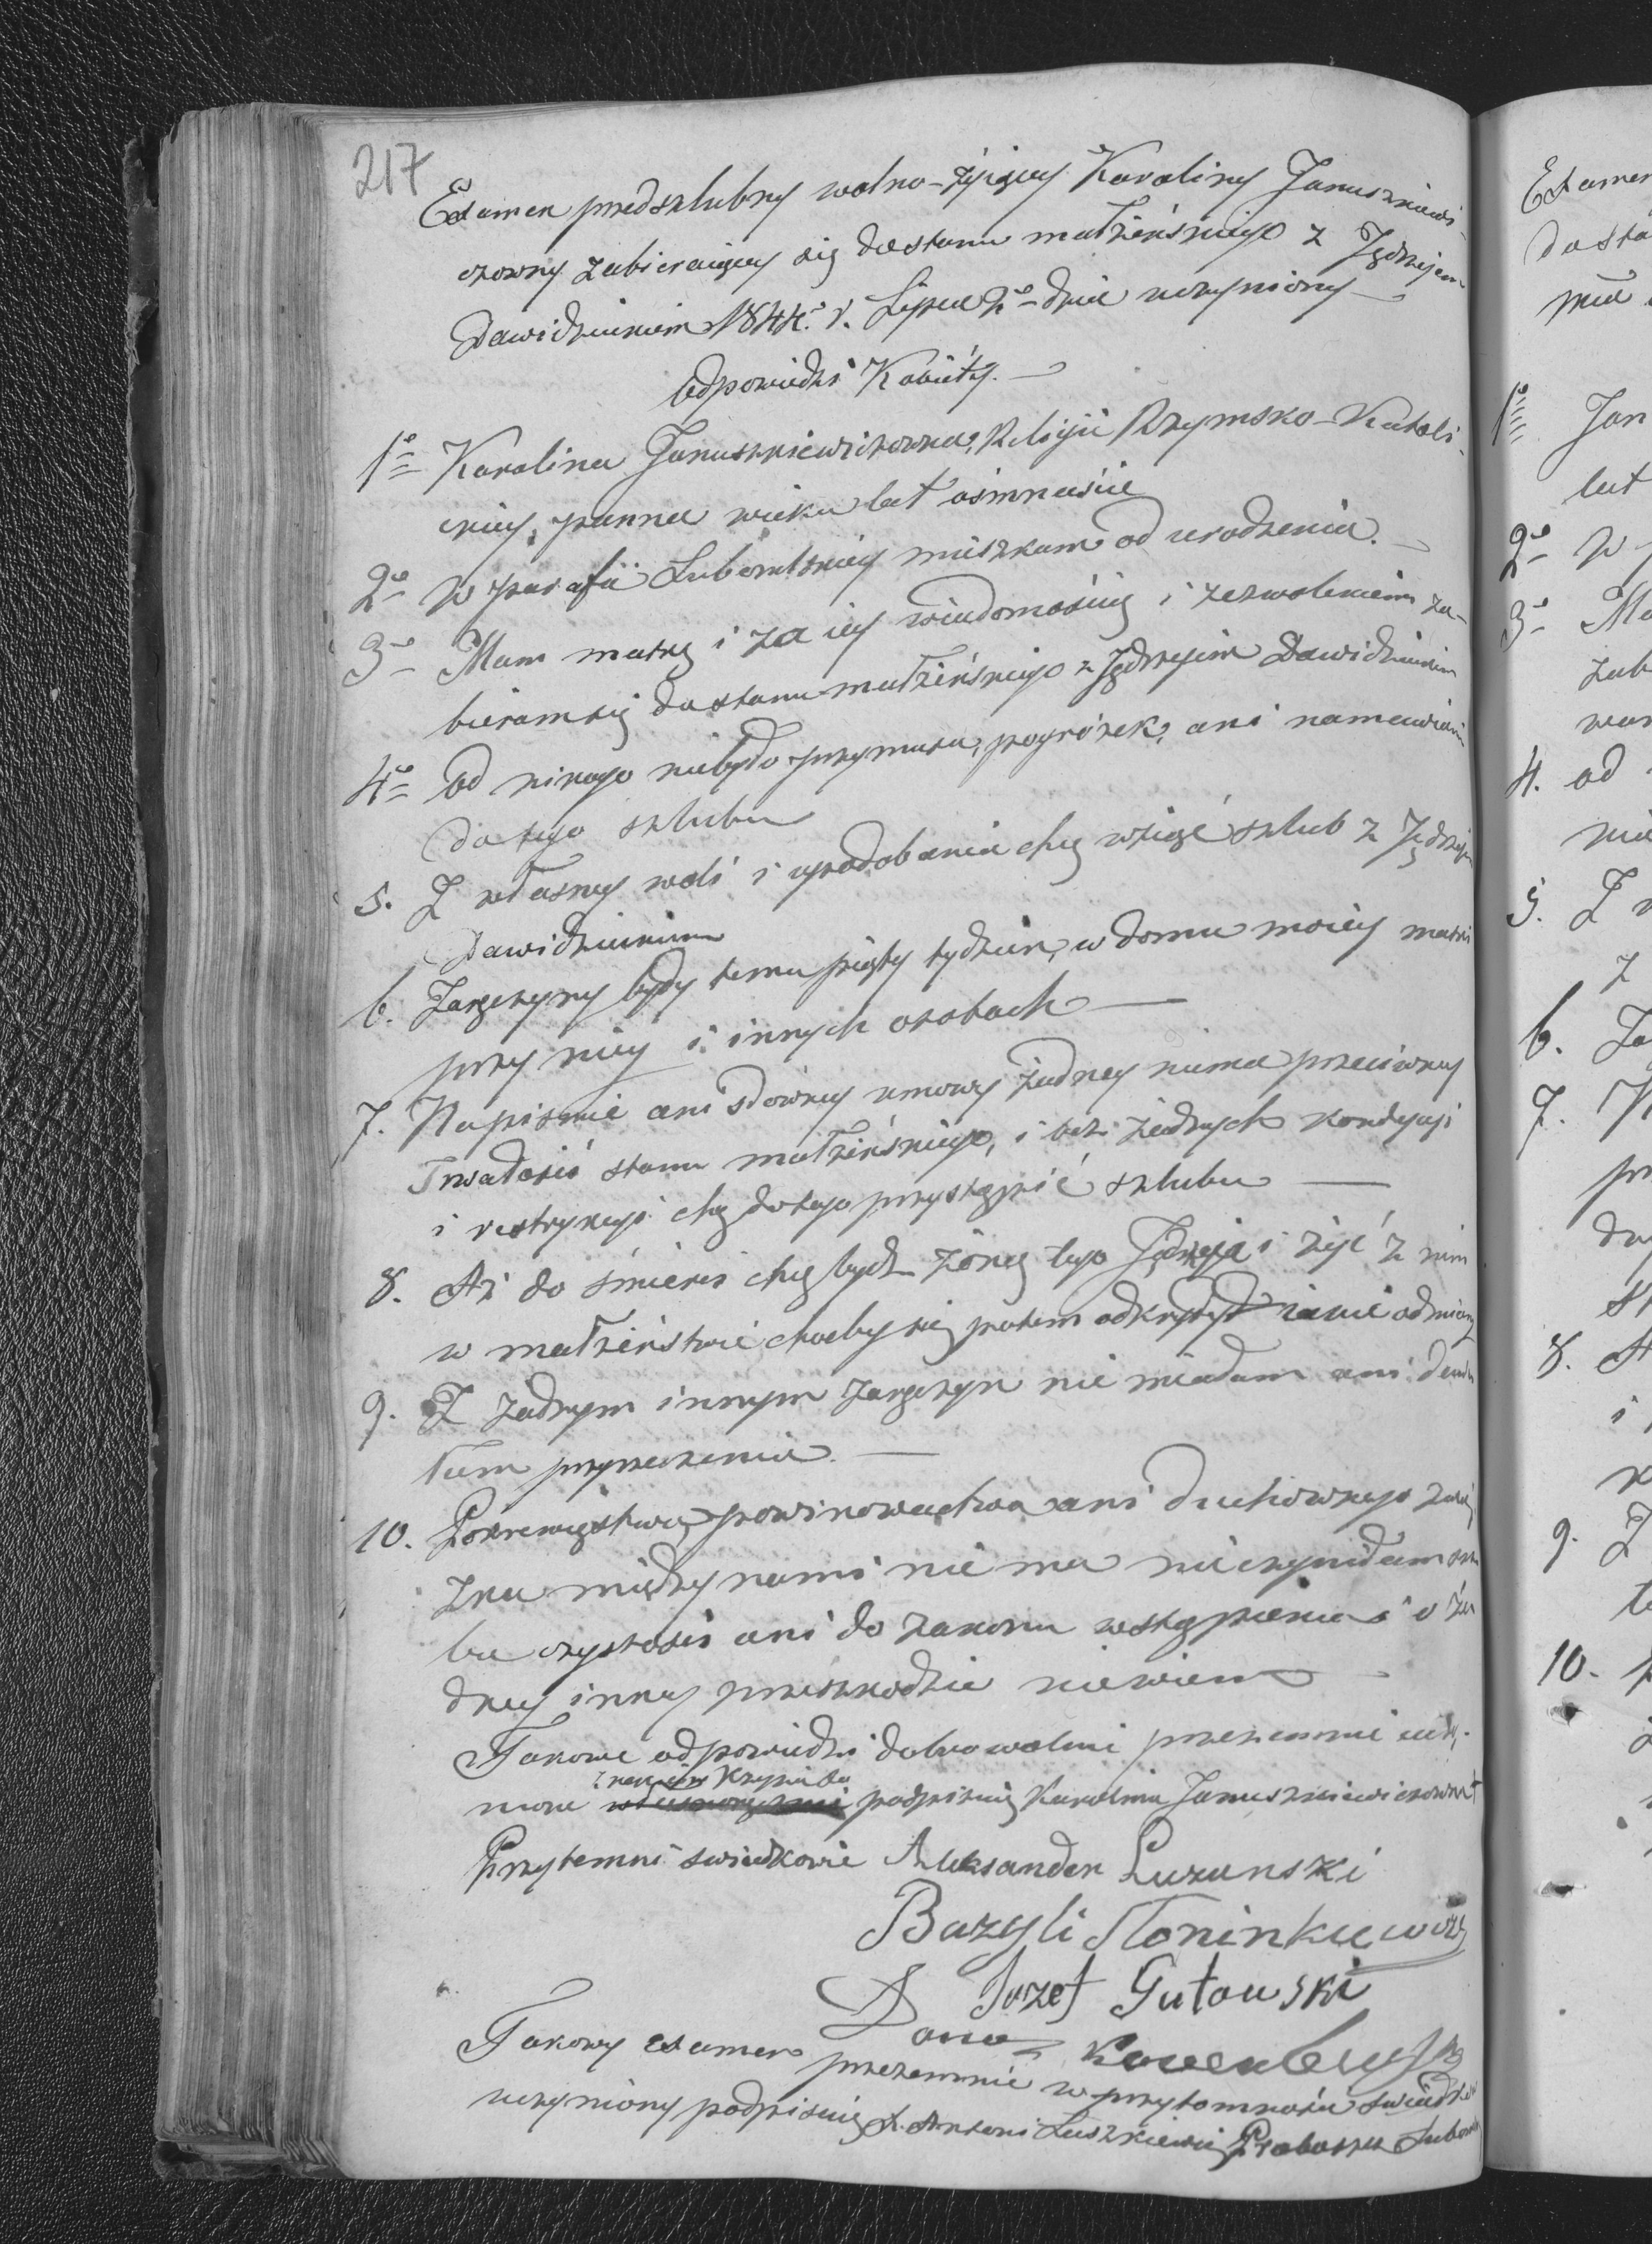 217
Examen przedszlubny wolno-żyiącey Karoliny Januszkiewi-
czowny zabieraiącey się do stanu małżeńskiego z Jędrzejem
Dawidziukiem 1844º r. Lipca 2º dnia uczyniony
Odpowiedzi Kobiéty.
1º Karolina Januszkiewiczowna, Religii Rzymsko-Katoli-
ckiey, panna wieku lat osimnaście
2º W parafii Lubomlskiey mieszkam od urodzenia.
3º Mam matkę i za iey wiadomością i zezwoleniem za-
bieram się do stanu małżeńskiego z Jędrzejem Dawidziukiem
4º Od nikogo niebyło przymusu, pogrózek, ani namawiania
do tego szlubu
5. Z własney woli i upodobania chcę wziąść szlub z Jędrzejem
Dawidziukiem
6. Zaręczyny były temu piąty tydzien, w domu moiey matki
przy niey i innych osobach
7. Napismie ani słowney umowy żadney niema przeciwney
trwałości stanu małżeńskiego, i bez żadnych kondycyi
i restrykcyi chcę do tego przystąpić szlubu
8. Aż do śmierci chcę bydź żoną tego Jędrzeja i żyć z nim
w małżeństwie choćby się potem odkryły iakie odmiany
9. Z żadnym innym zaręczyn nie miałam ani dawa-
łam przyrzeczenia.
10. Pokrewięstwa, powinowactwa ani duchownego zwią-
zku między nami nie ma nie czyniłam szlu-
bu czystości ani do zakonu wstąpienia i o ża-
dney inney przeszkodzie niewiem
Takowe odpowiedzi dobrowolnie przezemnie uczy-
nione znakiem Krzyża Sw podpisuię Karolina Januszkiewiczowna †
Przytemni swiadkowie Aleksander Luzanski
Bazyli Słoninkiewicz
Jozef Gutowski
Takowy examen przezemnie w przytomności swiadków
uczyniony podpisuię X. Antoni Luszkiewicz Proboszcz Lubom
Examen
do sta
1º Jan
lat
2º W
3º Ma
zab
4. od
nie
5. Z
z
6. Za
7. N
8. A
i
9. Z
10. p